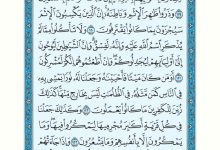 وَذَرُوا ظَاهِرَ الْإِثْمِ وَبَاطِنَهُ إِنَّ الَّذِينَ يَكْسِبُونَ الْإِثْمَ
سَيُجْزَوْنَ بِمَا كَانُوا يَقْتَرِفُونَ ۝ وَلَا تَأْكُلُوا مِمَّا لَمْ
يُذْكَرِ اسْمُ اللَّهِ عَلَيْهِ وَإِنَّهُ لَفِسْقٌ وَإِنَّ الشَّيَاطِينَ لَيُوحُونَ
إِلَى أَوْلِيَائِهِمْ لِيُجَادِلُوكُمْ وَإِنْ أَطَعْتُمُوهُمْ إِنَّكُمْ لَمُشْرِكُونَ
۝ أَوَمَنْ كَانَ مَيْتًا فَأَحْيَيْنَاهُ وَجَعَلْنَا لَهُ نُورًا يَمْشِي بِهِ
فِي النَّاسِ كَمَنْ مَثَلُهُ فِي الظُّلُمَاتِ لَيْسَ بِخَارِجٍ مِنْهَا كَذَلِكَ
زُيِّنَ لِلْكَافِرِينَ مَا كَانُوا يَعْمَلُونَ ۝ وَكَذَلِكَ جَعَلْنَا
فِي كُلِّ قَرْيَةٍ أَكَابِرَ مُجْرِمِيهَا لِيَمْكُرُوا فِيهَا وَمَا
يَمْكُرُونَ إِلَّا بِأَنْفُسِهِمْ وَمَا يَشْعُرُونَ ۝ وَإِذَا جَاءَتْهُمْ